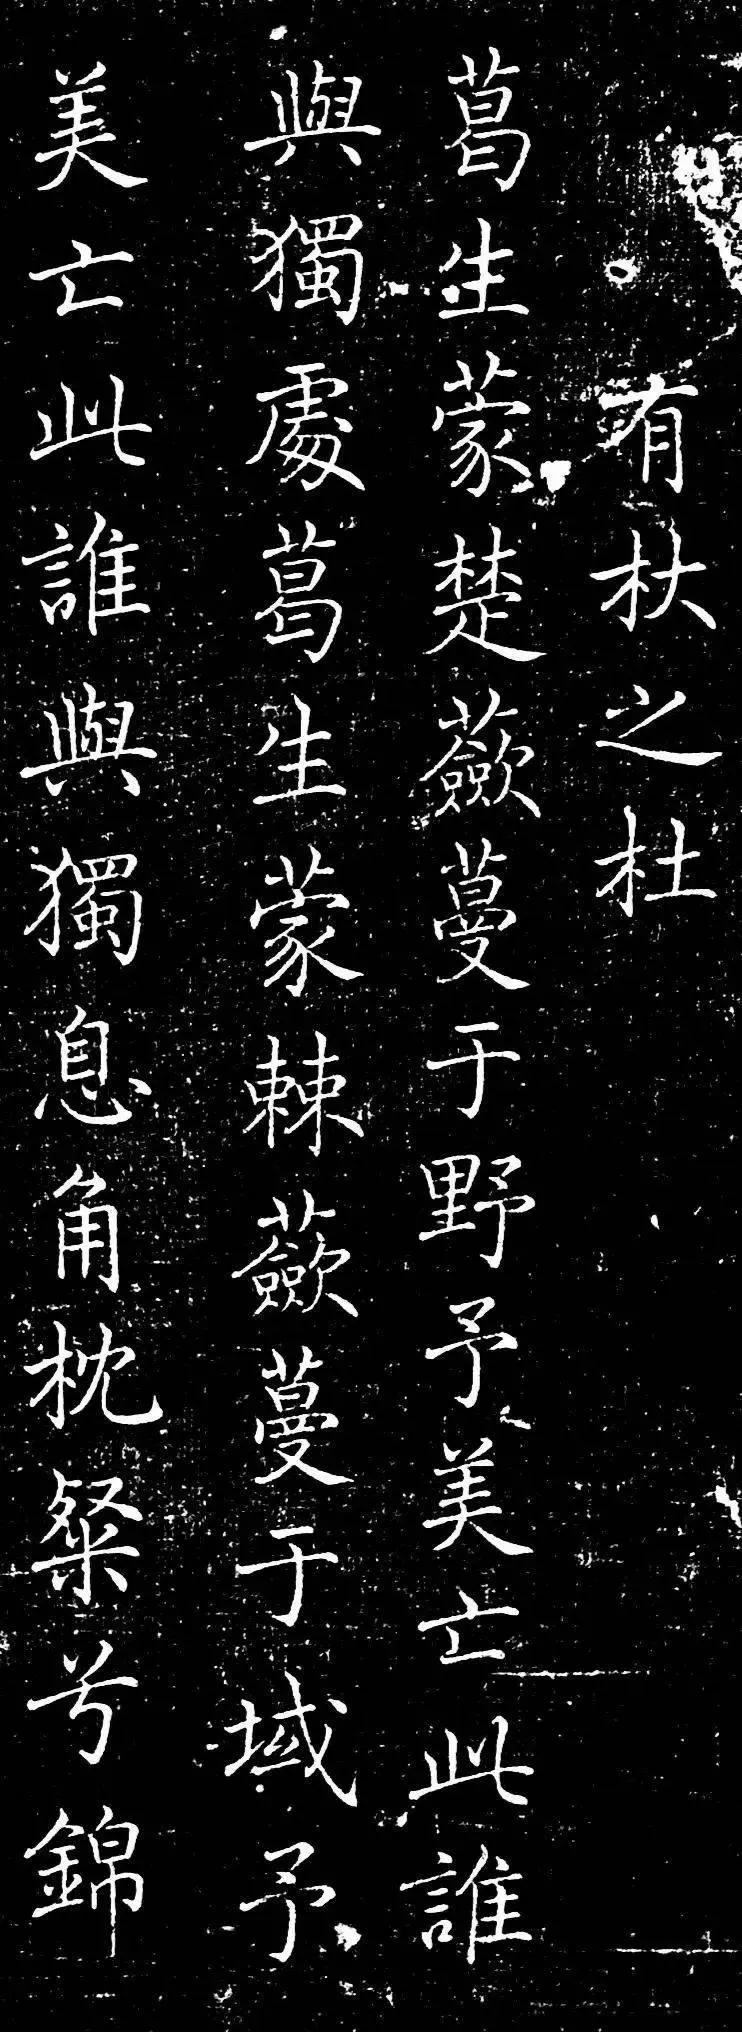 有杕之杜
葛生蒙楚蘞蔓于野予美亡此誰
與獨處葛生蒙棘蘞蔓于域予
美亡此誰與獨息角枕粲兮錦